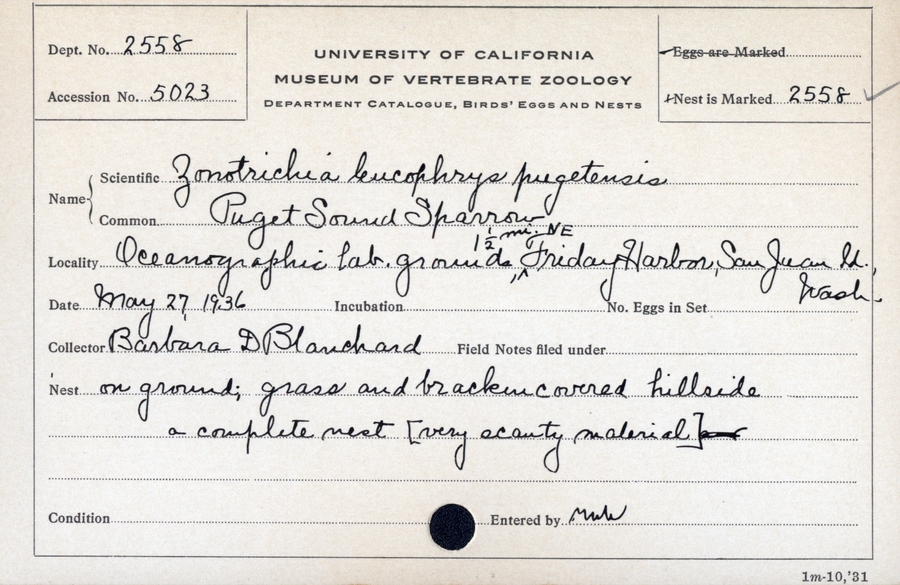 Dept. No. 2558
Accession No. 5023
UNIVERSITY OF CALIFORNIA
MUSEUM OF VERTEBRATE ZOOLOGY
DEPARTMENT CATALOGUE, BIRDS' EGGS AND NESTS
Eggs are Marked
Nest is Marked 2558
Name
Scientific Zonotrichia leucophrys pugetensis
Common Puget Sound Sparrow
1 1/2 mi. NE
Locality Oceanographic Lab. grounds, ^ Friday Harbor, San Juan Id.,
Wash.
Date May 27, 1936 Incubation No. Eggs in Set
Collector Barbara D Blanchard Field Notes filed under
Nest on ground; grass and bracken covered hillside
a complete nest [very scanty material]
Condition Entered by
1m-10,'31